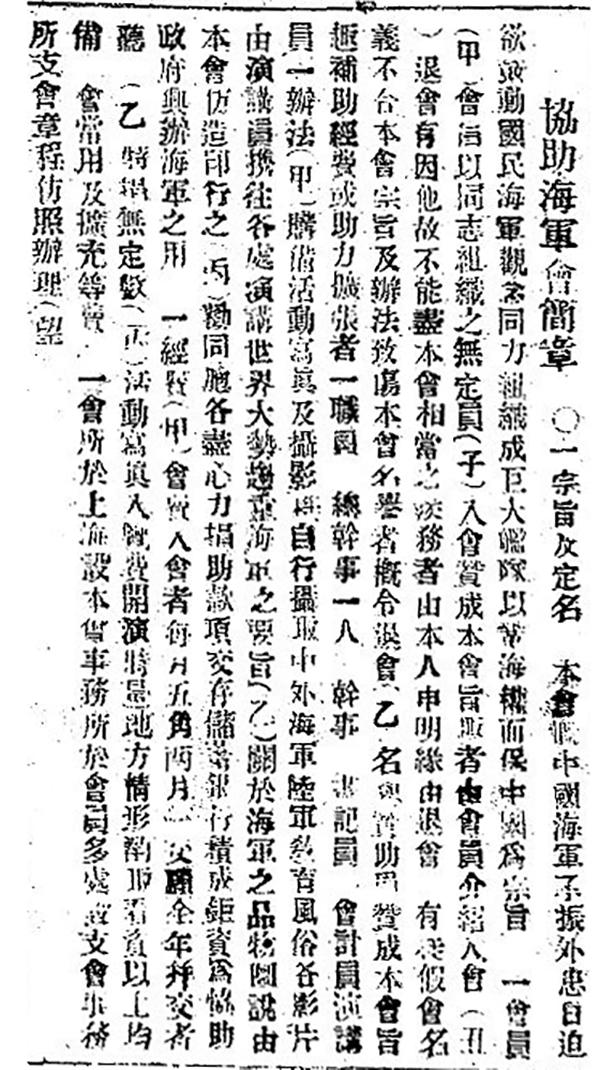 協助海軍會簡章　〇一宗旨及定名　本會慨中國海軍不振外患日迫
欲鼓動國民海軍觀念同力組織成巨大艦隊以葆海權而保中國爲宗旨　一會員
(甲)會員以同志組織之無定員(子)入會贊成本會旨趣者由會員介紹入會(丑
)退會有因他故不能盡本會相當之義務者由本人申明緣由退會　有受假會名
義不合本會宗旨及辦法致傷本會名譽者槪令退會(乙)名譽贊助員贊成本會旨
趣補助經費或助力擴張者一職員　總幹事一人　幹事　書記員　會計員演講
員一辦法(甲)購備活動寫真及攝影 自行攝取中外海軍陸軍敎育風俗各影片
由演講員携往各處演講世界大勢趨重海軍之要旨(乙)關於海軍之品物圖說由
本會仿造印行之(丙)勸同胞各盡心力捐助款項交存儲蓄銀行積成鉅資爲協助
政府興辦海軍之用　一經費(甲)會費入會者每月五角兩月一交願全年并交者
聽(乙)特捐無定數(丙)活動寫真入覽費開演時量地方情形酌取看資以上均
備　會常用及擴充等費　一會所於上海設本會事務所於會員多處設支會事務
所支會章程仿照辦理(望